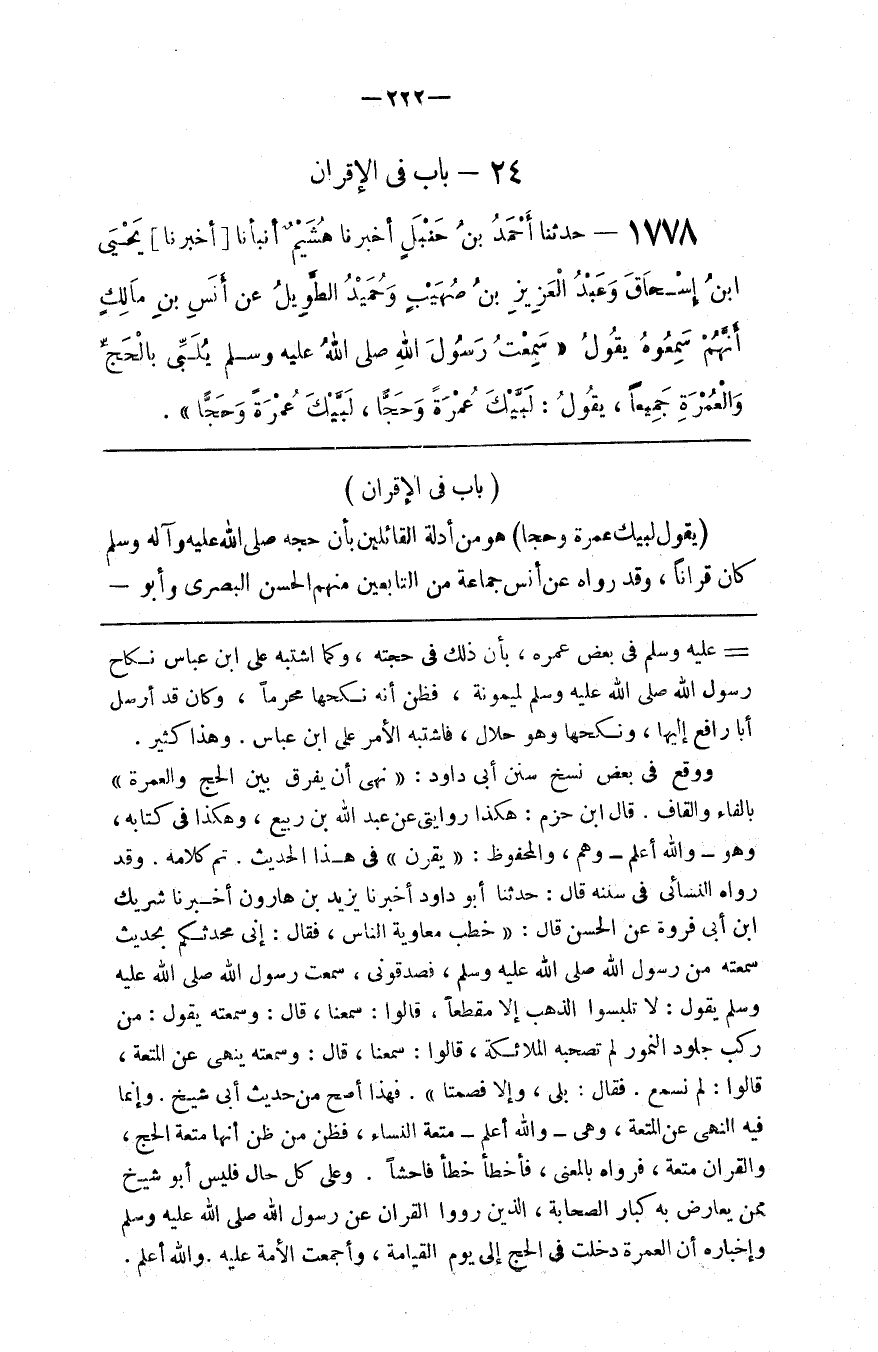 —٢٢٢—
٢٤ – باب فى الإقران
١٧٧٨ – حدثنا أَحْمَدُ بنُ حَنْبَلٍ أخبرنا هُشَيْمٌ أنبأنا [أخبرنا] يَحْيَى
ابنُ إِسْحَاقَ وَعَبْدُ الْعَزِيزِ بنُ صُهَيْبٍ وَحُمَيْدُ الطَّوِيلُ عن أَنَسِ بنِ مَالِكٍ
أَنَّهُمْ سَمِعُوهُ يقولُ « سَمِعْتُ رَسُولَ اللهِ صلى اللهُ عليه وسلم يُلَبِّى بالْحَجِّ
وَالْعُمْرَةِ جَمِيعاً ، يقُولُ : لَبَّيْكَ عُمْرَةً وَحَجًّا ، لَبَّيْكَ عُمْرَةً وَحَجًّا » .
( باب فى الإقران )
(يقول لبيك عمرة وحجا) هو من أدلة القائلين بأن حجه صلى الله عليه وآله وسلم
كان قراناً ، وقد رواه عن أنس جماعة من التابعين منهم الحسن البصرى وأبو –
= عليه وسلم فى بعض عمره ، بأن ذلك فى حجته ، وكما اشتبه على ابن عباس نكاح
رسول الله صلى الله عليه وسلم لميمونة ، فظن أنه نكحها محرماً ، وكان قد أرسل
أبا رافع إليها ، ونكحها وهو حلال ، فاشتبه الأمر على ابن عباس . وهذا كثير .
ووقع فى بعض نسخ سنن أبى داود : « نهى أن يفرق بين الحج والعمرة »
بالفاء والقاف . قال ابن حزم : هكذا روايتى عن عبد الله بن ربيع ، وهكذا فى كتابه ،
وهو – والله أعلم – وهم ، والمحفوظ : « يقرن » فى هذا الحديث . تم كلامه . وقد
رواه النسائى فى سننه قال : حدثنا أبو داود أخبرنا يزيد بن هارون أخبرنا شريك
ابن أبى فروة عن الحسن قال : « خطب معاوية الناس ، فقال : إنى محدثكم بحديث
سمعته من رسول الله صلى الله عليه وسلم ، فصدقونى ، سمعت رسول الله صلى الله عليه
وسلم يقول : لا تلبسوا الذهب إلا مقطعاً ، قالوا : سمعنا ، قال : وسمعته يقول : من
ركب جلود النمور لم تصحبه الملائكة ، قالوا : سمعنا ، قال : وسمعته ينهى عن المتعة ،
قالوا : لم نسمع . فقال : بلى ، وإلا فصمتا » . فهذا أصح من حديث أبى شيخ . وإنما
فيه النهى عن المتعة ، وهى – والله أعلم – متعة النساء ، فظن من ظن أنها متعة الحج ،
والقران متعة ، فرواه بالمعنى ، فأخطأ خطأ فاحشاً . وعلى كل حال فليس أبو شيخ
ممن يعارض به كبار الصحابة ، الذين رووا القران عن رسول الله صلى الله عليه وسلم
وإخباره أن العمرة دخلت فى الحج إلى يوم القيامة ، وأجمعت الأمة عليه . والله أعلم .